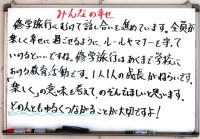 みんなの幸せ
修学旅行にむけて話し合いを進めています。全員が
楽しく幸せに過ごせるように、ルールやマナーを守って
いけるといいですね。修学旅行はあくまで学校に
おける教育活動です。1人1人の成長がねらいです。
楽しく、の意味も考えて、のぞんでほしいと思います。
どの人ともゆるくつながることが大切ですよ!